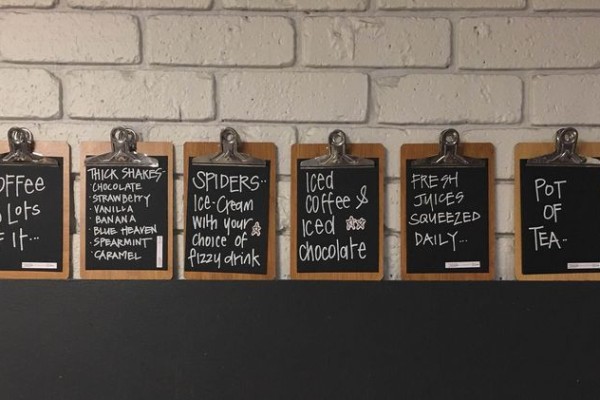 OFFEE
LOTS
F IT...
THICK SHAKES-
· CHOCOLATE
· STRAWBERRY
· VANILLA
· BANANA
· BLUE HEAVEN
· SPEARMINT
· CARAMEL
SPIDERS..
Ice-Cream
with your
choice of
fizzy drink
Iced
coffee &
Iced
chocolate
FRESH
JUICES
SQUEEZED
DAILY...
POT
OF
TEA..